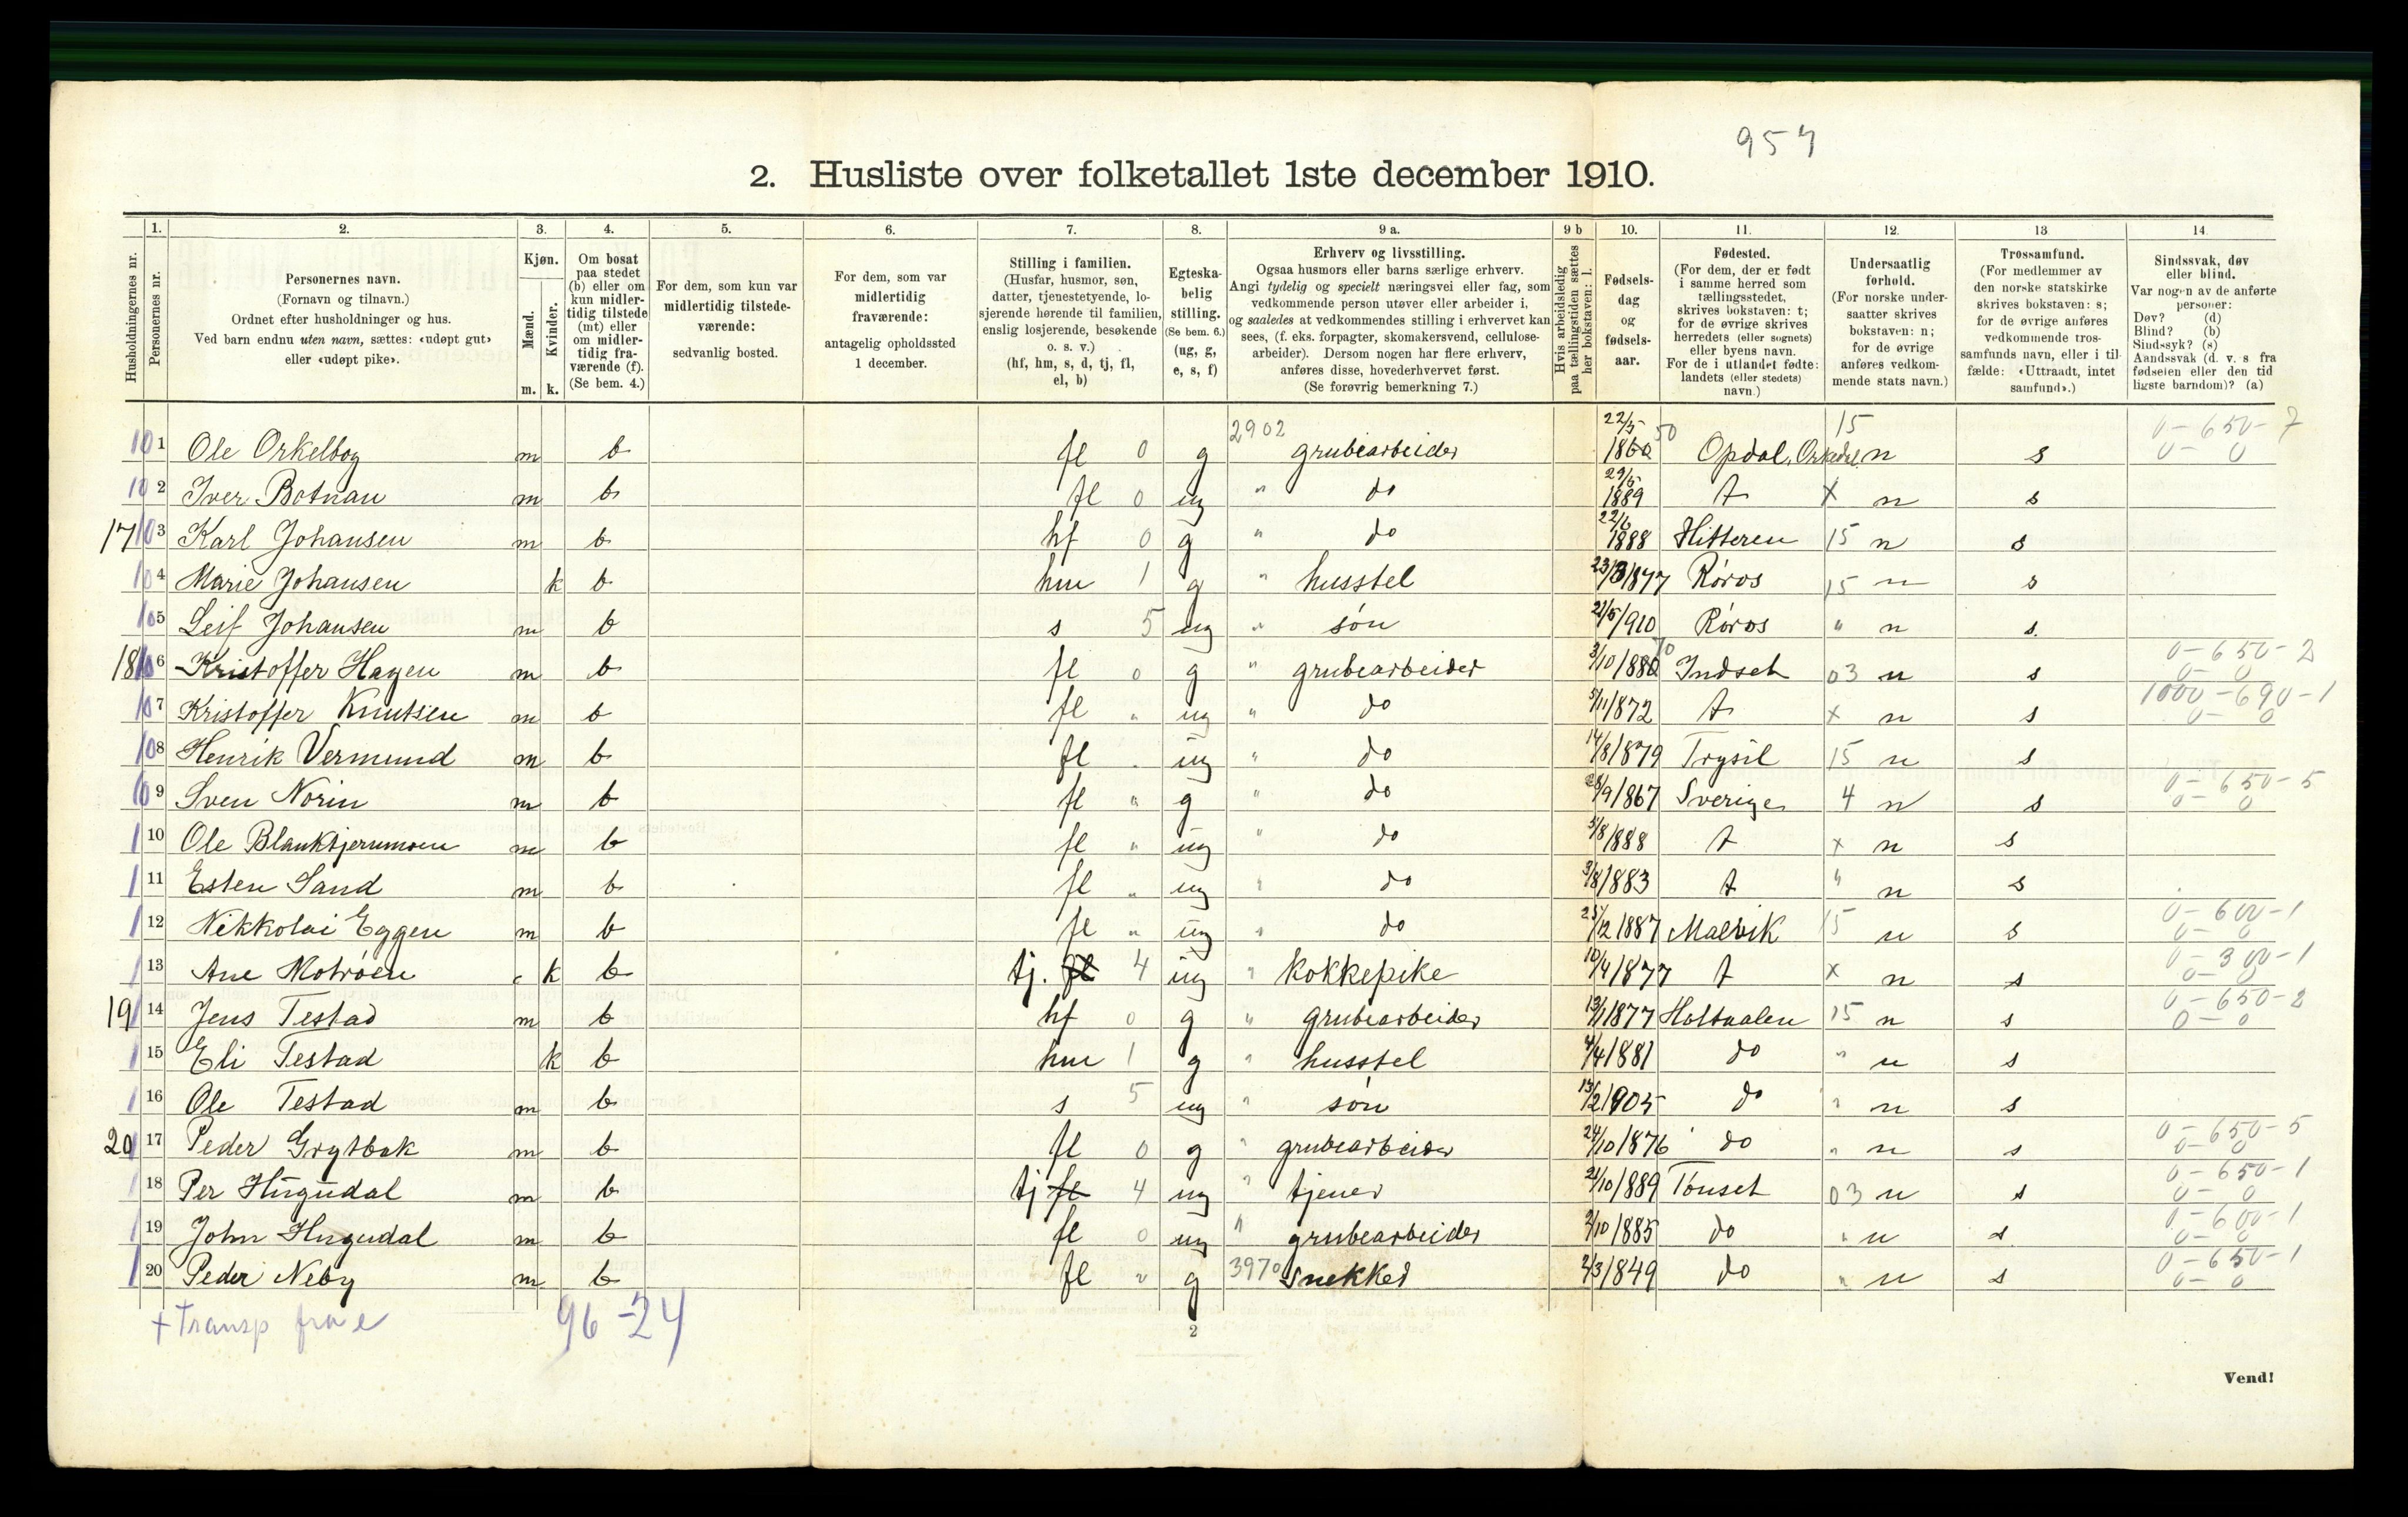 954
2. Husliste over folketallet 1ste december 1910.
Husholdningernes nr.
1. Personernes nr.
2. Personernes navn. (Fornavn og tilnavn.) Ordnet efter husholdninger og hus. Ved barn endnu uten navn, sættes: «udøpt gut» eller «udøpt pike».
3. Kjøn. Mænd. m. Kvinder. k.
4. Om bosat paa stedet (b) eller om kun midlertidig tilstede (mt) eller om midlertidig fraværende (f). (Se bem. 4.)
5. For dem, som kun var midlertidig tilstedeværende: sedvanlig bosted.
6. For dem, som var midlertidig fraværende: antagelig opholdssted 1 december.
7. Stilling i familien. (Husfar, husmor, søn, datter, tjenestetyende, losjerende hørende til familien, enslig losjerende, besøkende o. s. v.) (hf, hm, s, d, tj, fl, el, b)
8. Egteskabelig stilling. (Se bem. 6.) (ug, g, e, s, f)
9 a. Erhverv og livsstilling. Ogsaa husmors eller barns særlige erhverv. Angi tydelig og specielt næringsvei eller fag, som vedkommende person utøver eller arbeider i, og saaledes at vedkommendes stilling i erhvervet kan sees, (f. eks. forpagter, skomakersvend, cellulosearbeider). Dersom nogen har flere erhverv, anføres disse, hovederhvervet først. (Se forøvrig bemerkning 7.)
9 b Hvis arbeidsledig paa tællingstiden sættes her bokstaven: l.
10. Fødselsdag og fødselsaar.
11. Fødested. (For dem, der er født i samme herred som tællingsstedet, skrives bokstaven: t; for de øvrige skrives herredets (eller sognets) eller byens navn. For de i utlandet fødte: landets (eller stedets) navn.)
12. Undersaatlig forhold. (For norske undersaatter skrives bokstaven: n; for de øvrige anføres vedkommende stats navn.)
13 Trossamfund. (For medlemmer av den norske statskirke skrives bokstaven: s; for de øvrige anføres vedkommende trossamfunds navn, eller i tilfælde: «Uttraadt, intet samfund».)
14 Sindssvak, døv eller blind. Var nogen av de anførte personer: Døv? (d) Blind? (b) Sindssyk? (s) Aandssvak (d. v. s. fra fødselen eller den tidligste barndom)? (a)
10 1 Ole Orkelbog m b fl 0 g 2902 grubearbeider 22/5 1860 50 Opdal, Orkedal 15 n s 0-650-7 0-0
10 2 Iver Botnan m b fl 0 ug " do 29/5 1889 t x n s
17 10 3 Karl Johansen m b hf 0 g " do 22/6 1888 Hitteren 15 n s
10 4 Marie Johansen k b hm 1 g " husstel 23/3 1877 Røros 15 n s
10 5 Leif Johansen m b s 5 ug " søn 21/5 1910 Røros " n s.
18 10 6 Kristoffer Hagen m b fl 0 g " grubearbeider 3/10 1880 70 Indset 03 n s 0-650-2 0-0
10 7 Kristoffer Knutsen m b fl " ug " do 5/11 1872 t x n s 1000-690-1 0-0
10 8 Henrik Vermund m b fl " ug " do 14/8 1879 Trysil 15 n s
10 9 Sven Norin m b fl " g " do 28/9 1867 Sverige 4 n s 0-650-5 0-0
1 10 Ole Blankkjernmoen m b fl " ug " do 5/8 1888 t x n s
1 11 Esten Sand m b fl " ug " do 3/8 1883 t " n s
1 12 Nikkolai Eggen m b fl " ug " do 25/12 1887 Malvik 15 n s 0-600-1 0-0
1 13 Ane Motrøen k b tj. fl 4 ug " kokkepike 10/4 1877 t x n s 0-300-1 0-0
19 1 14 Jens Testad m b hf 0 g " grubearbeider 13/1 1877 Holtaalen 15 n s 0-650-2 0-0
1 15 Eli Testad k b hm 1 g " husstel 4/4 1881 do " n s
1 16 Ole Testad m b s 5 ug " søn 13/2 1905 do " n s
20 1 17 Peder Grytbak m b fl 0 g " grubearbeider 24/10 1876 do " n s 0-650-5 0-0
1 18 Per Hugudal m b tj fl 4 ug " tjener 21/10 1889 Tønset 03 n s 0-650-1 0-0
1 19 John Hugudal m b fl 0 ug " grubearbeider 2/10 1885 do " n s 0-600-1 0-0
1 20 Peder Neby m b fl " g 3970 Snekker 2/3 1849 do " n s 0-650-1 0-0
+ Transp fra e 96-24
2
Vend!